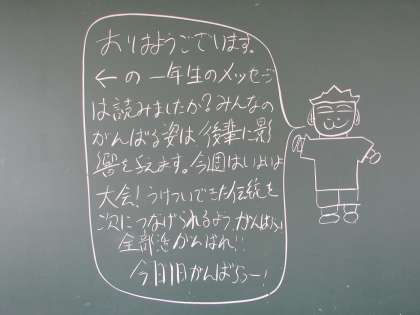 おはようございます。
←の一年生のメッセージ
は読みましたか?みんなの
がんばる姿は後輩に影
響を与えます。今週はいよいよ
大会!うけついできた伝統を
次につなげられるよう、がんばれ!
全部活がんばれ!!
今日1日がんばろうー!